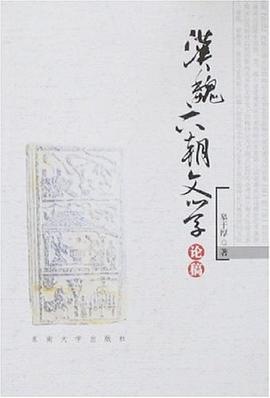 漢魏六朝文学
论稿
皋于厚 著
东南大学出版社